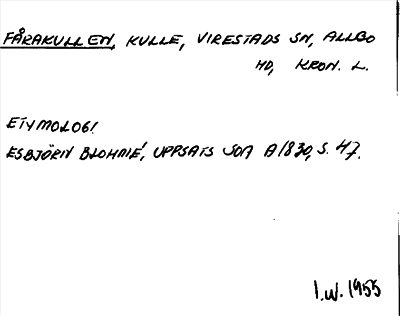 FÅRAKULLEN, KULLE, VIRESTADS SN, ALLBO
HD, KRON. L.
ETYMOLOGI
ESBJÖRN BLOHMÉ, UPPSATS SOA A1830, S. 47.
I.W. 1955